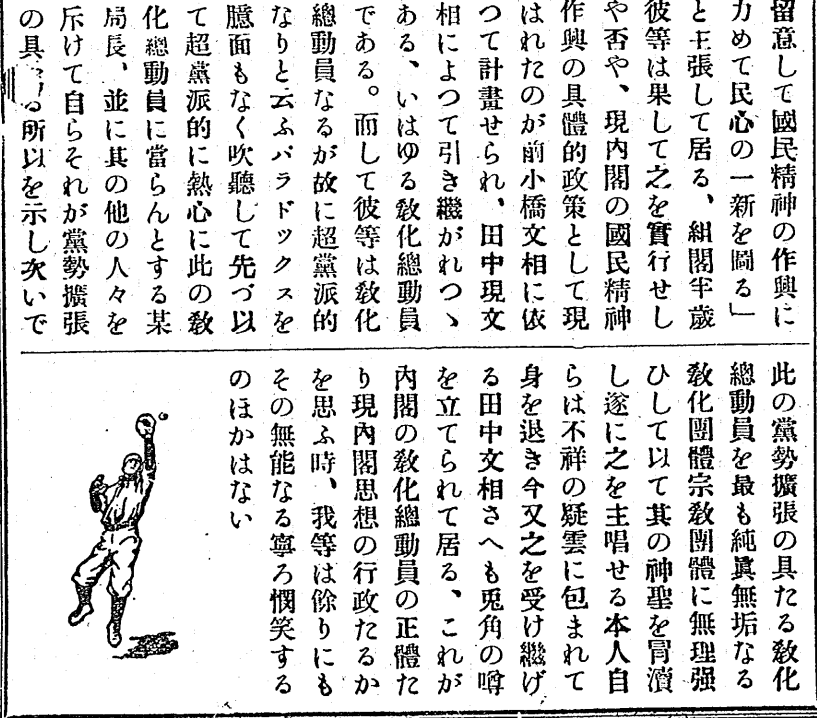 留意して國民精神の作興に
力めて民心の一新を圖る」
と主張して居る、組閣半歲
彼等は果して之を實行せし
や否や、現內閣の國民精神
作興の具體的政策として現
はれたのが前小橋文相に依
つて計畫せられ、田中現文
相によつて引き繼がれつゝ
ある、いはゆる敎化總動員
である。而して彼等は敎化
總動員なるが故に超黨派的
なりと云ふパラドックスを
臆面もなく吹聽して先づ以
て超黨派的に熱心に此の敎
化總動員に當らんとする某
局長、並に其の他の人々を
斥けて自らそれが黨勢擴張
の具たる所以を示し次いで
此の黨勢擴張の具たる敎化
總動員を最も純眞無垢なる
敎化團體宗敎團體に無理强
ひして以て其の神聖を冐瀆
し遂に之を主唱せる本人自
らは不祥の疑雲に包まれて
身を退き今又之を受け繼げ
る田中文相さへも兎角の噂
を立てられて居る、これが
內閣の敎化總動員の正體た
り現內閣思想の行政たるか
を思ふ時、我等は餘りにも
その無能なる寧ろ憫笑する
のほかはない